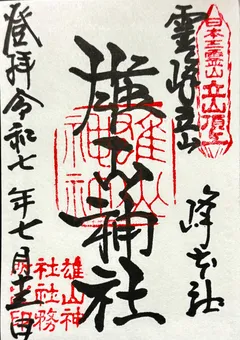 日本三霊山立山頂上
霊峰立山
峰本社
雄山神社
雄山神社
登拝令和七年七月十三日
雄山神
社社務
所之印